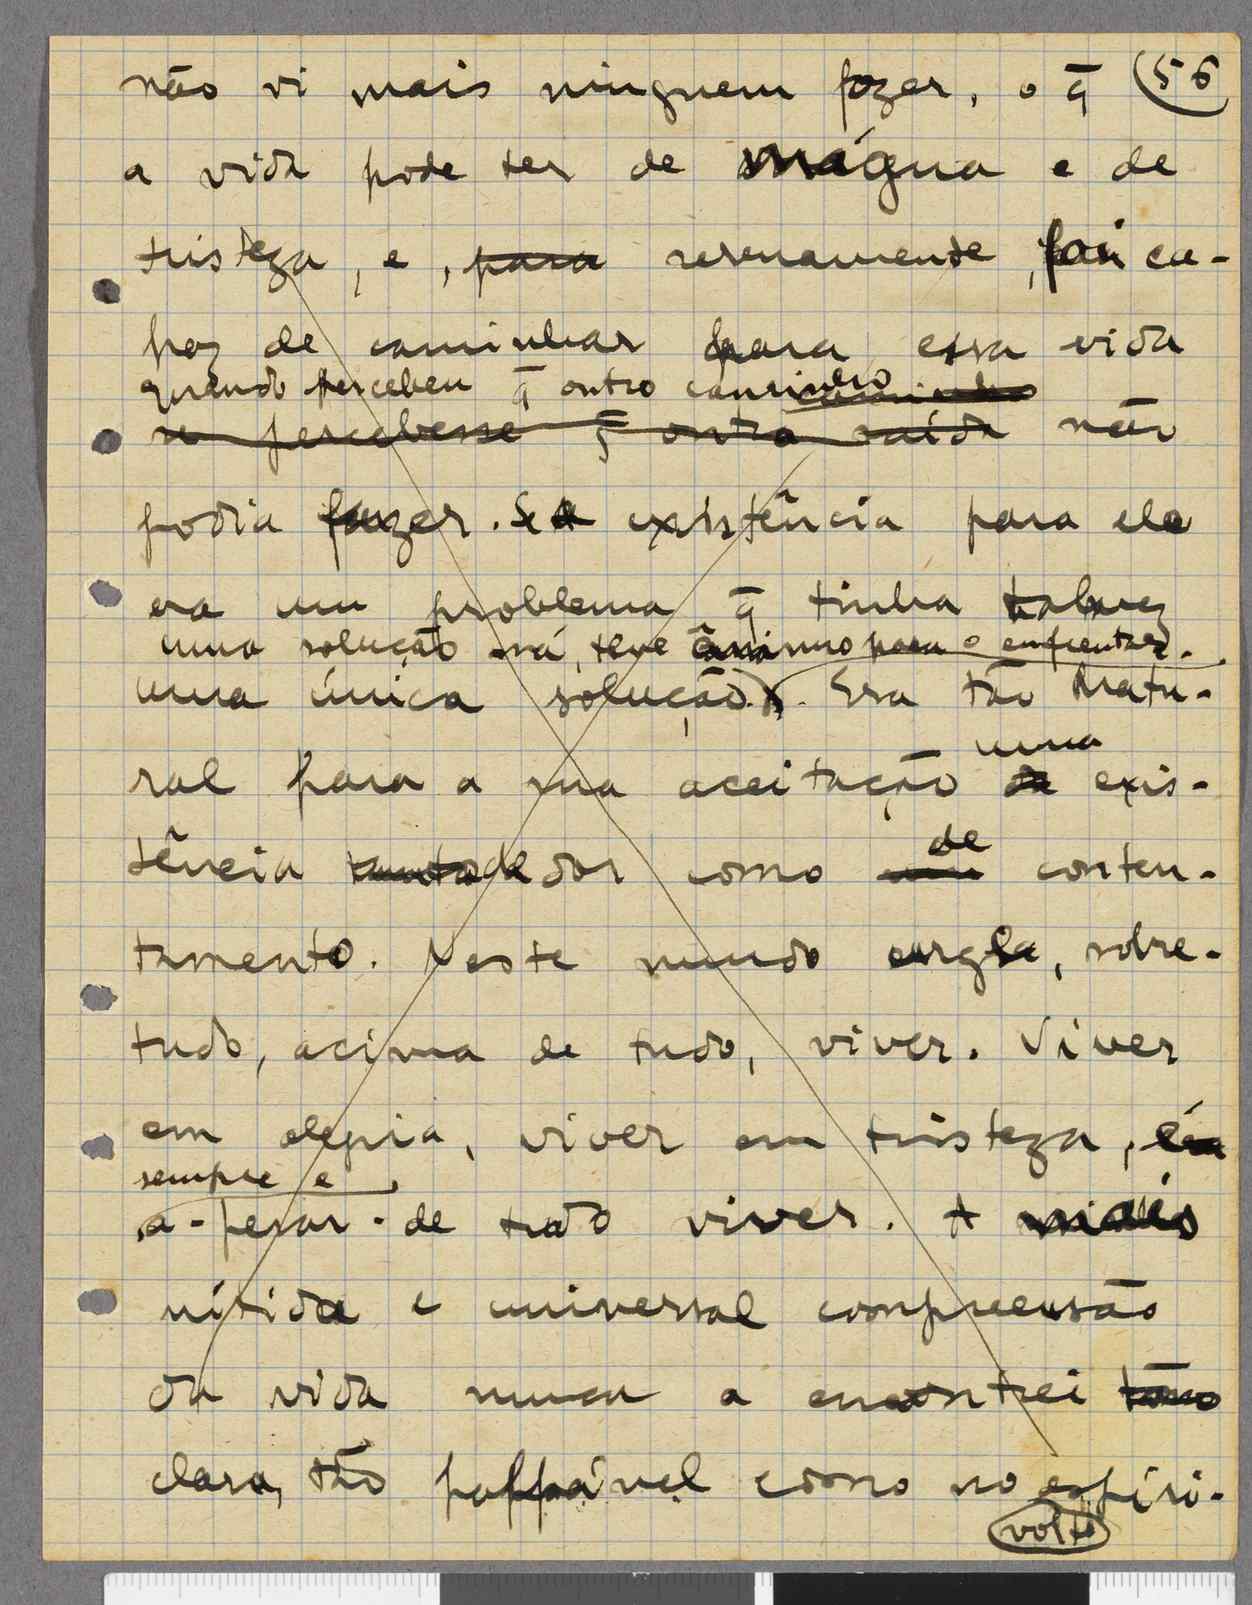 não vi mais ninguem fazer, o q̄ (56
a vida pode ter de mágua e de
tristeza, e, para serenamente, foi ca-
paz de caminhar para essa vida
quando percebeu q̄ outro caminho caminho
se percebesse q̄ outra saída não
podia fazer. Se a existência para ele
era um problema q̄ tinha talvez
uma solução só, teve ânimo para o enfrentar.
uma única solução. Era tão natu-
ral para a sua aceitação uma
da exis-
tência tanto de dor como de
um conten-
tamento. Neste mundo surgia, sobre-
tudo, acima de tudo, viver. Viver
em alegria, viver em tristeza,
sempre e
a-pesar-de tudo viver. A mais
nítida e universal compreensão
da vida nunca a encontrei tão
clara, tão palpável como no espíri-
volta